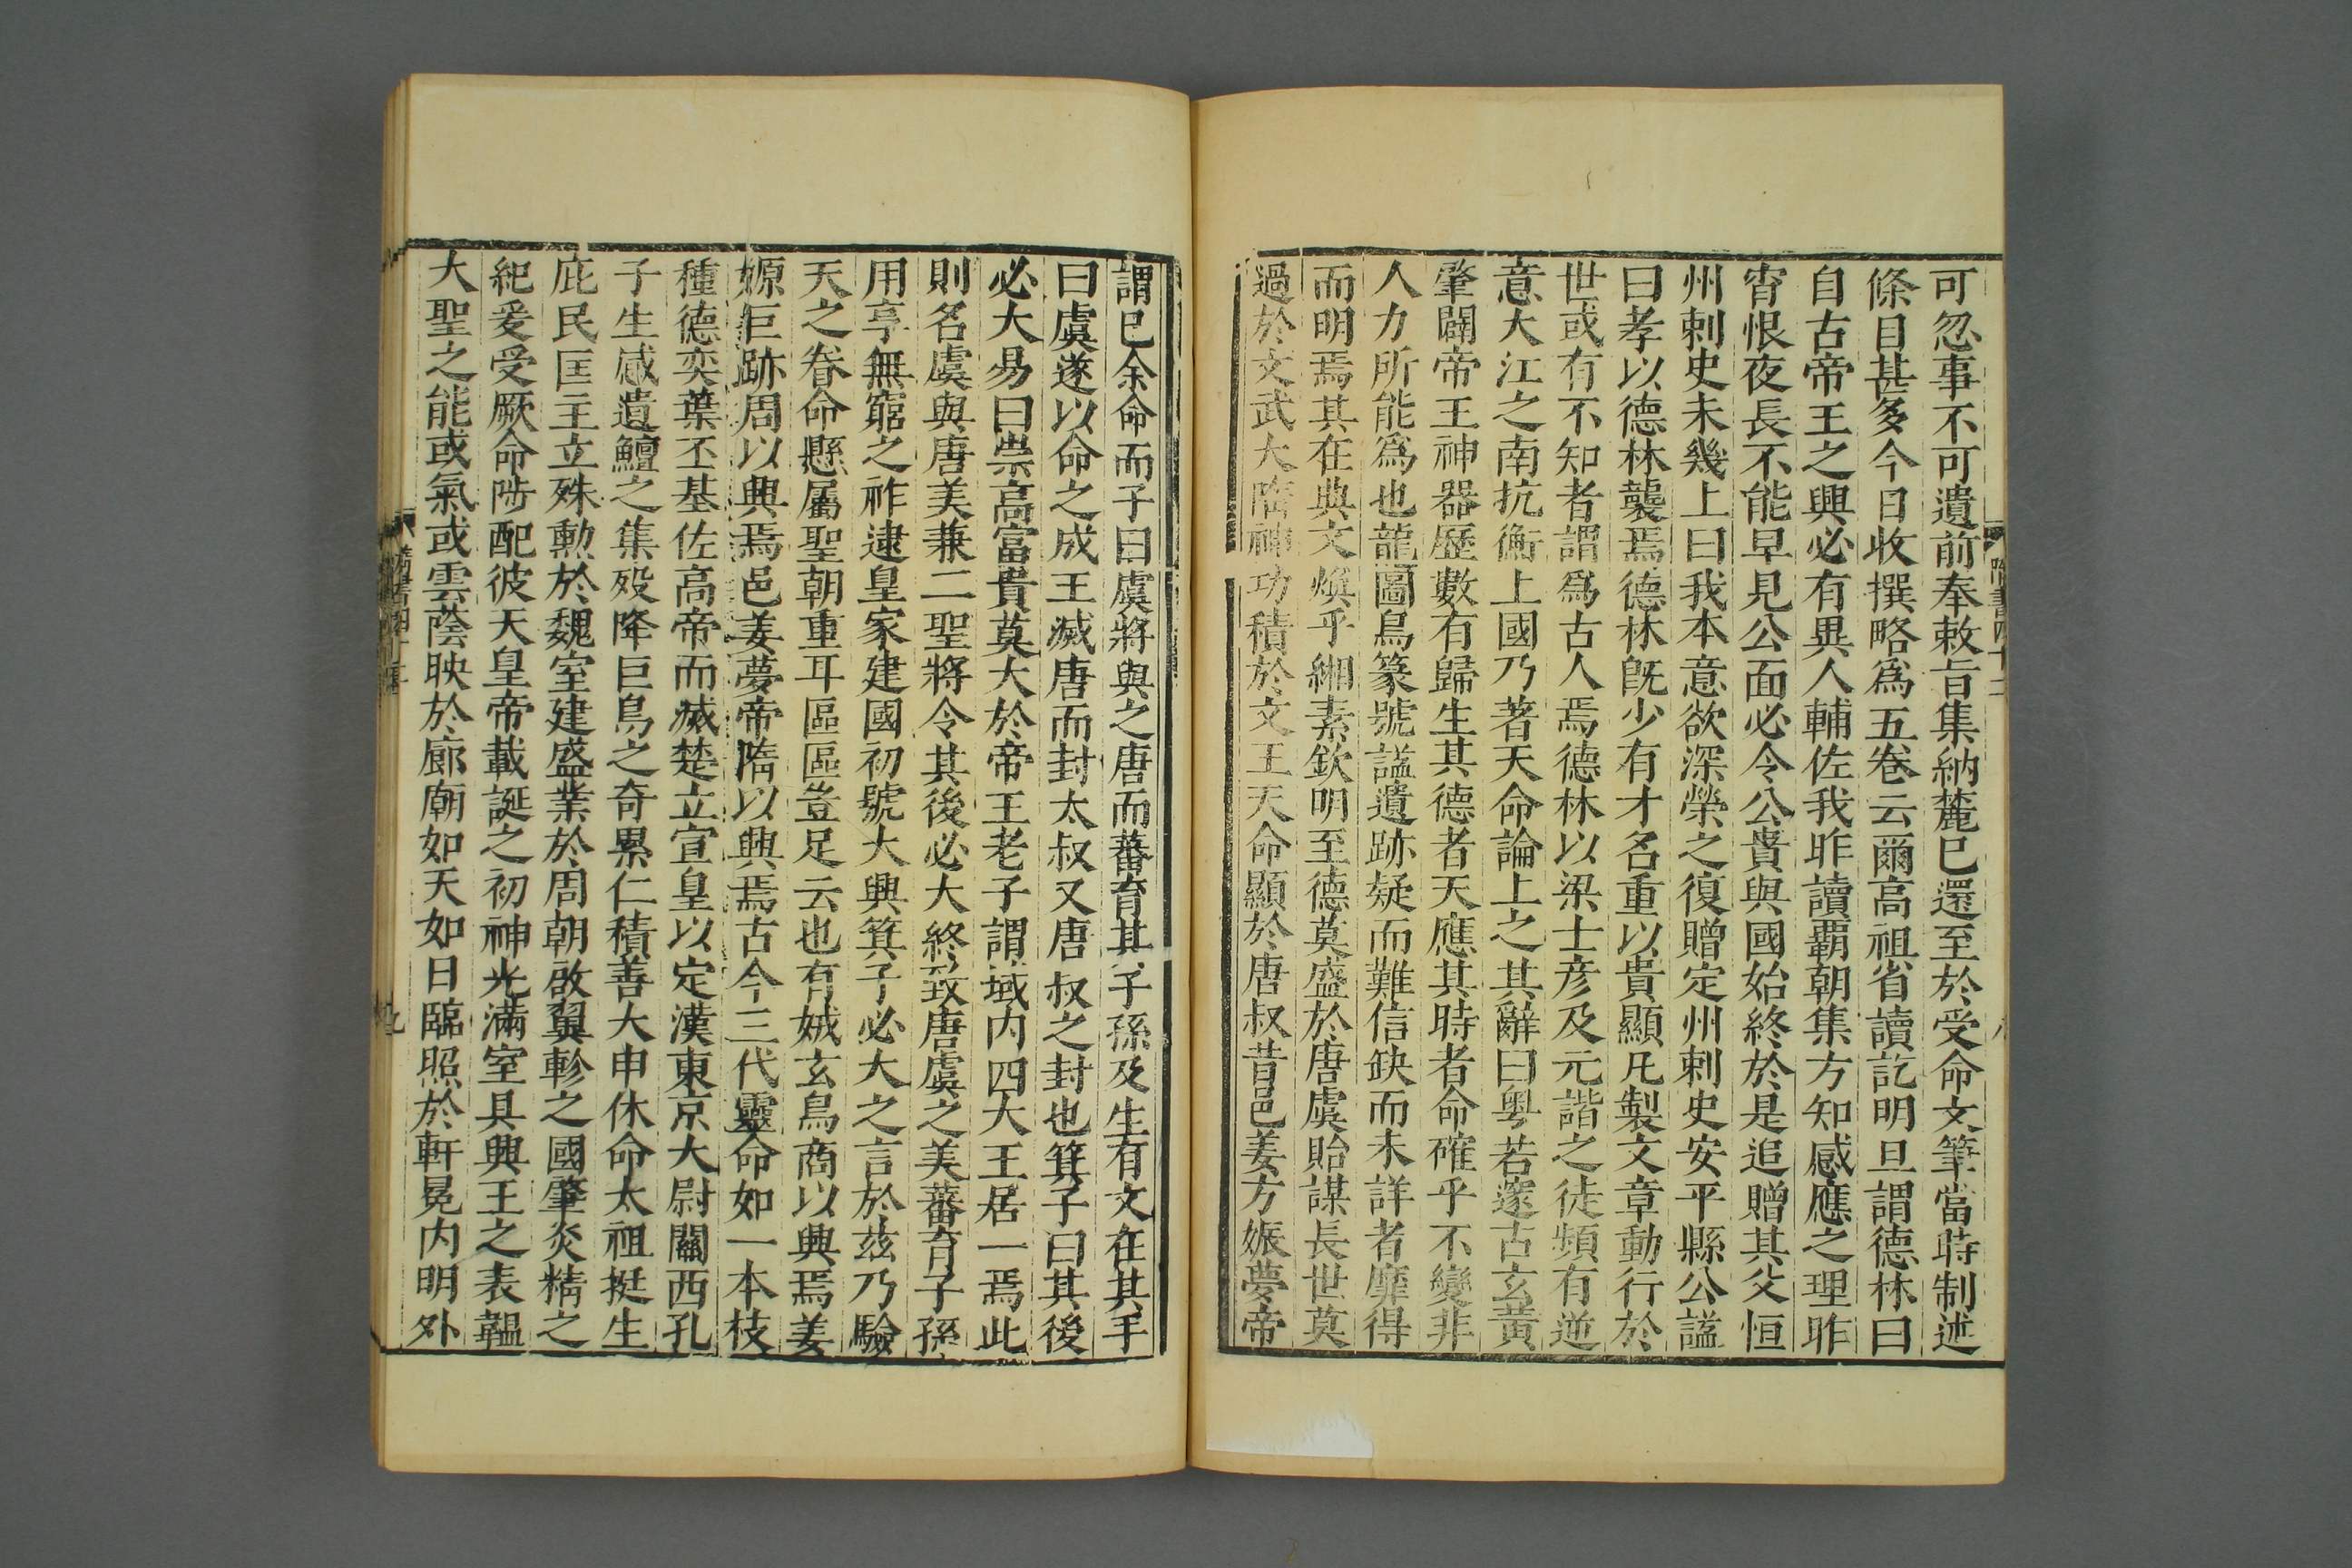 可忽事不可遺前奉敕旨集納麓已還至於受命文筆當時制述
條目甚多今日收撰略爲五卷云爾高祖省讀訖明旦謂德林曰
自古帝王之興必有異人輔佐我昨讀霸朝集方知感應之理昨
宵恨夜長不能早見公面必令公貴與國始終於是追贈其父恒
州刺史未幾上曰我本意欲深榮之復贈定州刺史安平縣公謚
曰孝以德林襲焉德林旣少有才名重以貴顯凡製文章動行於
世或有不知者謂爲古人焉德林以梁士彦及元諧之徒頻有逆
意大江之南抗衡上國乃著天命論上之其辭曰粤若邃古玄黃
肇闢帝王神器歷數有歸生其德者天應其時者命確乎不變非
人力所能爲也龍圖鳥篆號謚遺跡疑而難信缺而未詳者靡得
而明焉其在典文煥乎緗素欽明至德莫盛於唐虞貽謀長世莫
過於文武大隋神功積於文王天命顯於唐叔昔邑姜方娠夢帝
謂已余命而子曰虞將與之唐而蕃育其子孫及生有文在其手
曰虞遂以命之成王滅唐而封太叔又唐叔之封也箕子曰其後
必大易曰崇高富貴莫大於帝王老子謂域内四大王居一焉此
則名虞與唐美兼二聖將令其後必大終致唐虞之美蕃育子孫
用享無窮之祚逮皇家建國初號大興箕子必大之言於兹乃驗
天之眷命懸屬聖朝重耳區區豈足云也有娀玄鳥商以興焉姜
嫄巨跡周以興焉邑姜夢帝隋以興焉古今三代靈命如一本枝
種德奕葉丕基佐高帝而滅楚立宣皇以定漢東京大尉關西孔
子生感遺鱣之集殁降巨鳥之奇累仁積善大申休命太祖挺生
庇民匡主立殊勳於魏室建盛業於周朝啟翼軫之國肇炎精之
紀爰受厥命陟配彼天皇帝載誕之初神光滿室具興王之表韞
大聖之能或氣或雲蔭映於廊廟如天如日臨照於軒冕内明外
隋書四十二
九